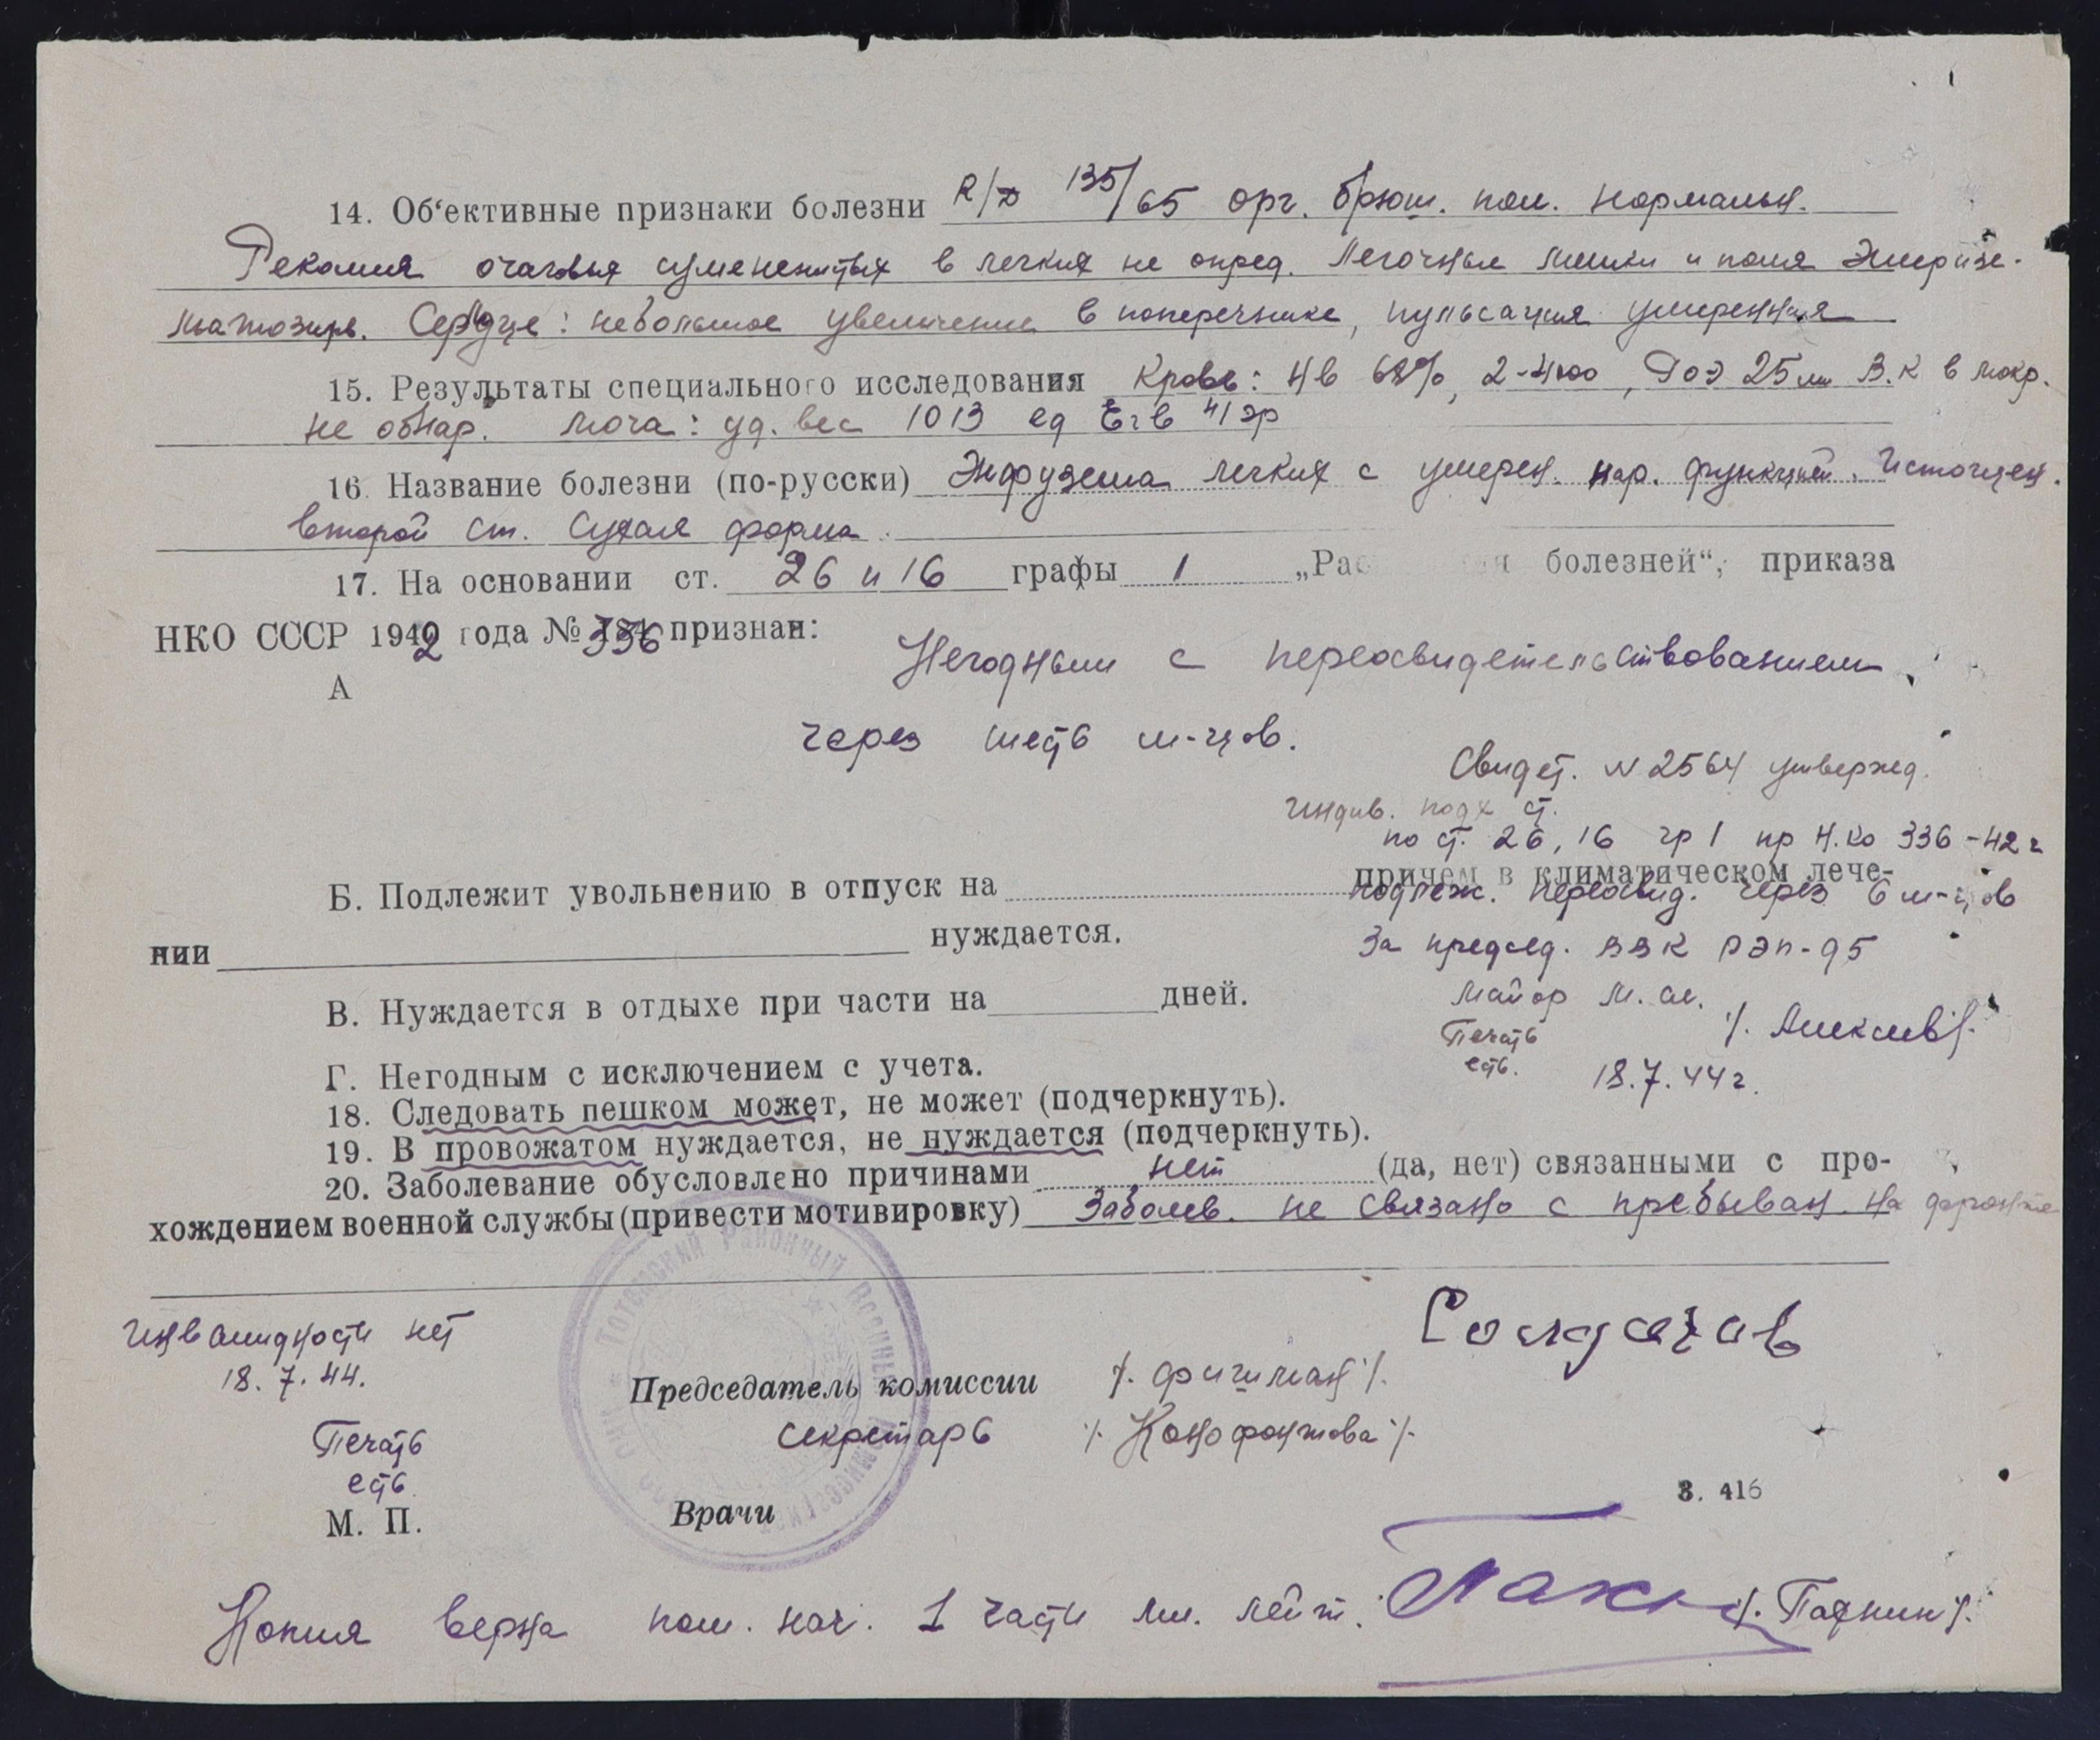 14. Об‘ективные признаки болезни R/D 135/65 орг. брюш. пол. нормальн.
очаговых в легких не опред. Легочные и поля
Сердце: небольшое увеличение в поперечнике, пульсация умеренная
15. Результаты специального исследования Кровь: Нв 68%, РОЭ 25 мм В.К в мокр.
не обнар. моча: уд. вес 1013 ед
16. Название болезни (по-русски) легких с умерен. нар. функций. Истощен.
второй ст. Сухая форма
17. На основании ст. 26 и 16 графы 1 „Рас я болезней“, приказа
НКО СССР 1942 года № 336 признан:
А
Негодным с переосвидетельствованием
через шесть м-цов.
Свидет. N 2564 утвержд.
индив. подх ст.
по ст. 26, 16 гр 1 пр Н.Ко 336-42 г
Б. Подлежит увольнению в отпуск на причем в климатическом лече-
подлеж. переосвид. через 6 м-цов
нии нуждается.
За председ. ВВК РЭП-95
В. Нуждается в отдыхе при части на дней.
майор м. сл.
Печать
есть.
18.7.44 г.
Г. Негодным с исключением с учета.
18. Следовать пешком может, не может (подчеркнуть).
19. В провожатом нуждается, не нуждается (подчеркнуть).
20. Заболевание обусловлено причинами нет (да, нет) связанными с про-
хождением военной службы (привести мотивировку) Заболев. не связано с пребыван. на фронте
инвалидности нет
18.7.44.
Председатель комиссии /. Фигиман /.
секретарь
Печать
есть
М. П.
Врачи
З. 416
Копия верна пом. нач. 1 части мл. лейт.